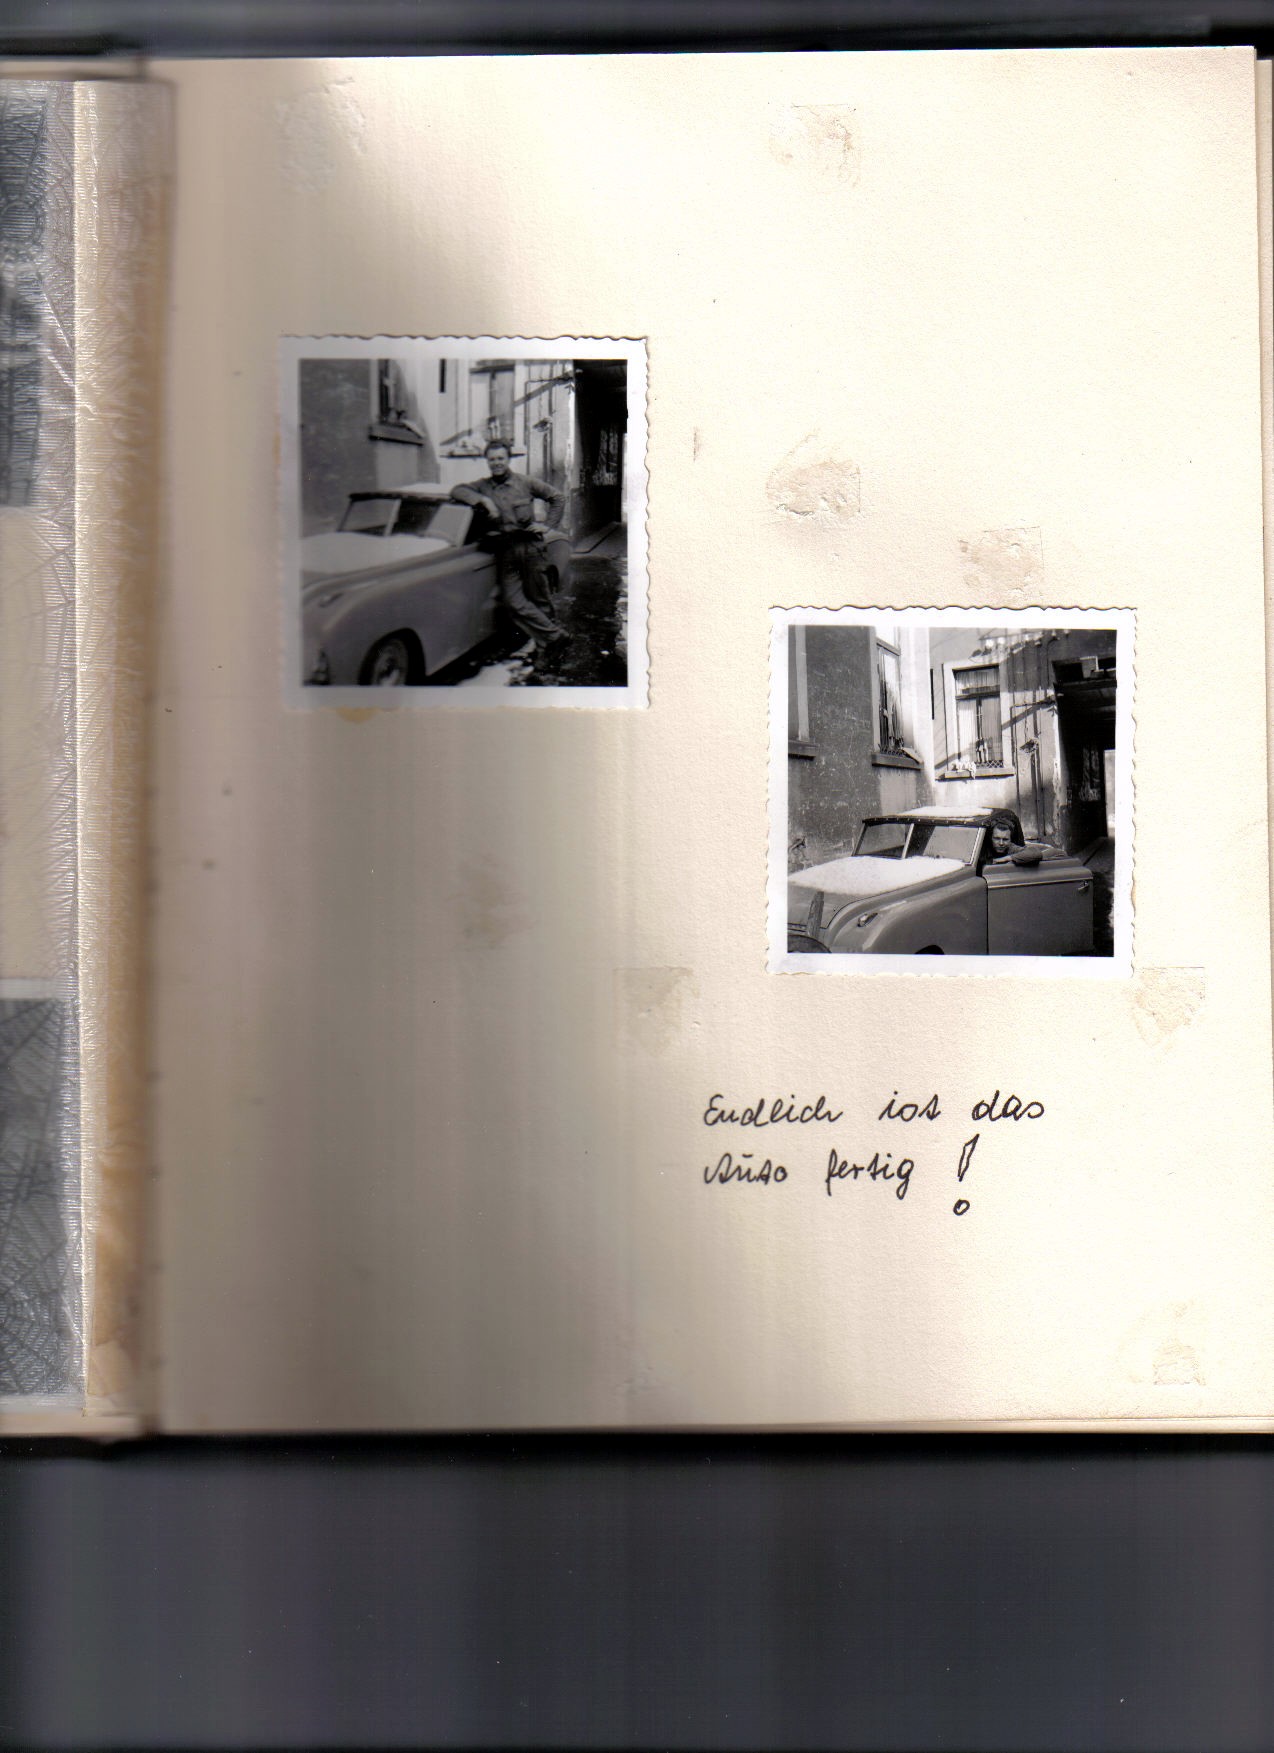 Endlich ist das
Auto fertig!